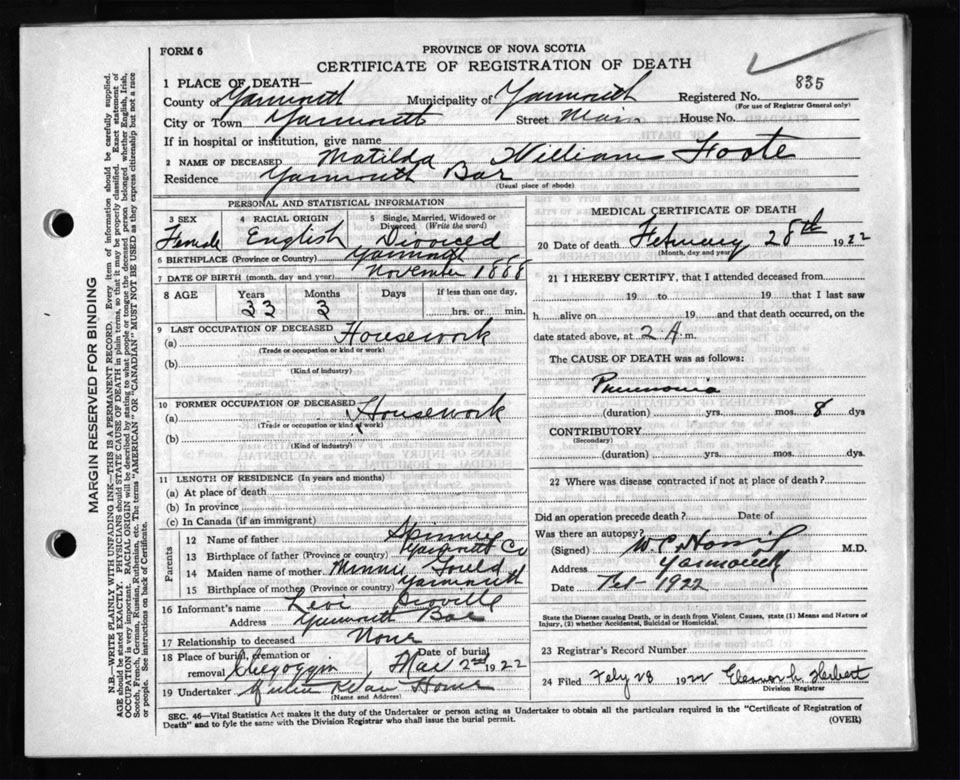 FORM 6
PROVINCE OF NOVA SCOTIA
CERTIFICATE OF REGISTRATION OF DEATH
835
1 PLACE OF DEATH—
County of Yarmouth Municipality of Yarmouth Registered No.
(For use of Registrar General only)
City or Town Yarmouth Street Main House No.
If in hospital or institution, give name
2 NAME OF DECEASED Matilda William Foote
Residence Yarmouth Bar
(Usual place of abode)
PERSONAL AND STATISTICAL INFORMATION
3 SEX Female
4 RACIAL ORIGIN English
5 Single, Married, Widowed or Divorced (Write the word) Divorced
6 BIRTHPLACE (Province or Country) Yarmouth
7 DATE OF BIRTH (month, day and year) November 1888
8 AGE Years Months Days If less than one day,
33 3 hrs. or min.
9 LAST OCCUPATION OF DECEASED
(a) Housework
(Trade or occupation or kind of work)
(b)
(Kind of industry)
10 FORMER OCCUPATION OF DECEASED
(a) Housework
(Trade or occupation or kind of work)
(b)
(Kind of industry)
11 LENGTH OF RESIDENCE (In years and months)
(a) At place of death
(b) In province
(c) In Canada (if an immigrant)
Parents
12 Name of father Spinney
13 Birthplace of father (Province or country) Yarmouth Co
14 Maiden name of mother Minnie Gould
15 Birthplace of mother (Province or country) Yarmouth
16 Informant's name Levi
Address Yarmouth Bar
17 Relationship to deceased None
18 Place of burial, cremation or removal Chegoggin Date of burial Mar 2nd 1922
19 Undertaker Home
(Name and Address)
MEDICAL CERTIFICATE OF DEATH
20 Date of death February 28th 1922
(Month, day and year)
21 I HEREBY CERTIFY, that I attended deceased from
19 to 19 that I last saw
h alive on 19 and that death occurred, on the
date stated above, at 2 A. m.
The CAUSE OF DEATH was as follows:
Pneumonia
(duration) yrs. mos. 8 dys
CONTRIBUTORY
(Secondary)
(duration) yrs. mos. dys.
22 Where was disease contracted if not at place of death?
Did an operation precede death? Date of
Was there an autopsy?
(Signed) W. C. M.D.
Address Yarmouth
Date Feb 1922
State the Disease causing Death, or in death from Violent Causes, state (1) Means and Nature of
Injury, (2) whether Accidental, Suicidal or Homicidal.
23 Registrar's Record Number
24 Filed Feby 28 1922 Eleanor h. Herbert
Division Registrar
SEC. 46—Vital Statistics Act makes it the duty of the Undertaker or person acting as Undertaker to obtain all the particulars required in the "Certificate of Registration of
Death" and to fyle the same with the Division Registrar who shall issue the burial permit.
(OVER)
MARGIN RESERVED FOR BINDING
N.B.—WRITE PLAINLY WITH UNFADING INK—THIS IS A PERMANENT RECORD. Every item of information should be carefully supplied.
AGE should be stated EXACTLY. PHYSICIANS should STATE CAUSE OF DEATH in plain terms, so that it may be properly classified. Exact statement of
OCCUPATION is very important. RACIAL ORIGIN will be described by stating to what people or tongue the deceased person belonged, whether English, Irish,
Scotch, French, German, Russian, Ruthenian, etc. The terms "AMERICAN" OR "CANADIAN" MUST NOT BE USED as they express citizenship but not a race
or people. See instructions on back of Certificate.